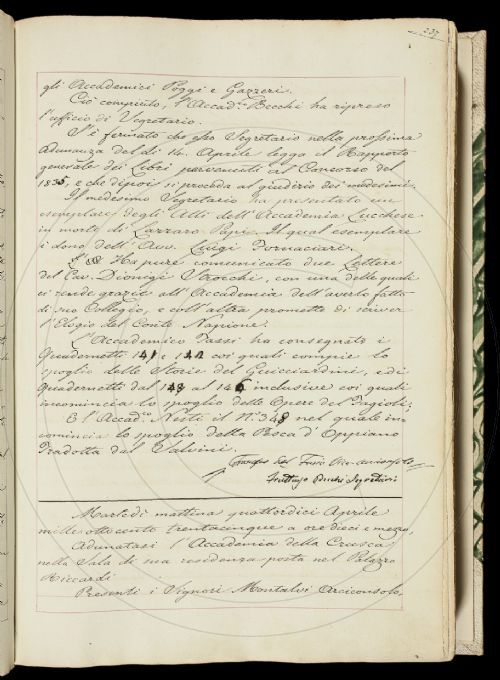 237
gli Accademici Poggi e Gazzeri.
Ciò compiuto, l'Accad.co Becchi ha ripreso
l'uffizio di Segretario.
S'è fermato che esso Segretario nella prossima
Adunanza del dì 14. Aprile legga il Rapporto
generale dei Libri pervenuti al Concorso del
1835, e che dipoi si proceda al giudizio dei medesimi.
Il medesimo Segretario ha presentato un
esemplare degli Atti dell'Accademia Lucchese
in morte di Lazzaro Papi. Il qual esemplare
è dono dell'Avv. Luigi Fornaciari.
Ha pure comunicato due Lettere
del Cav. Dionigi Strocchi, con una delle quali
ei rende grazie all'Accademia dell'averlo fatto
di suo Collegio, e coll'altra promette di scriver
l'Elogio del Conte Napione.
L'Accademico Tassi ha consegnato i
Quadernetti 141 e 142 coi quali compie lo
spoglio delle Storie del Guicciardini, e di
Quadernetti dal 143 al 146 inclusive coi quali
incomincia lo spoglio delle Opere del Fagioli;
E l'Accad.co Nesti il N.° 348 nel quale in-
comincia lo spoglio della Pesca d'Oppiano
Tradotta dal Salvini.
Fruttuoso Becchi Segretario
Martedì mattina quattordici Aprile
mille ottocento trentacinque a ore dieci e mezzo,
Adunatasi l'Accademia della Crusca
nella Sala di sua residenza posta nel Palazzo
Riccardi
Presenti i Signori Montalvi Arciconsolo,